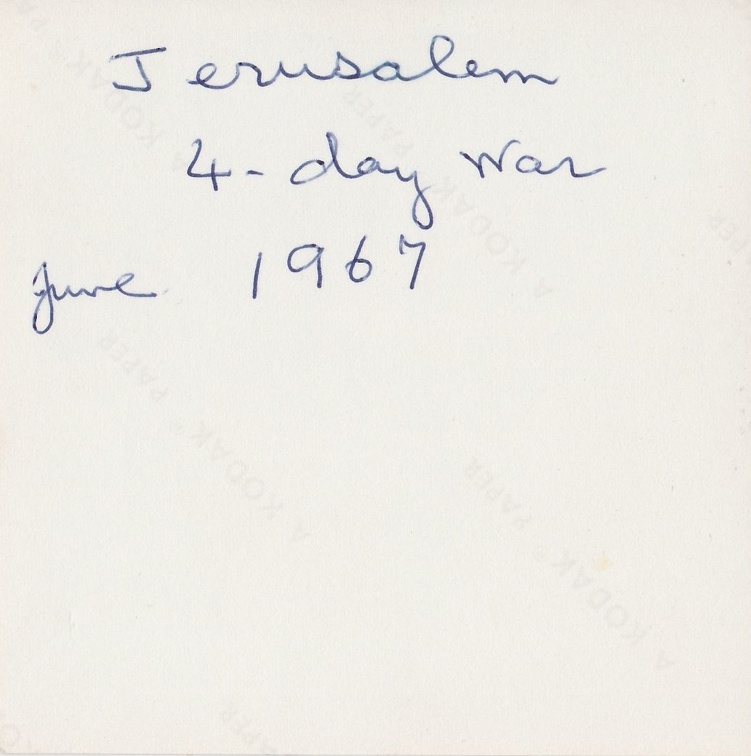 Jerusalem
4-day War
June 1967
A KODAK® PAPER
A KODAK® PAPER
A KODAK® PAPER
A KODAK® PAPER